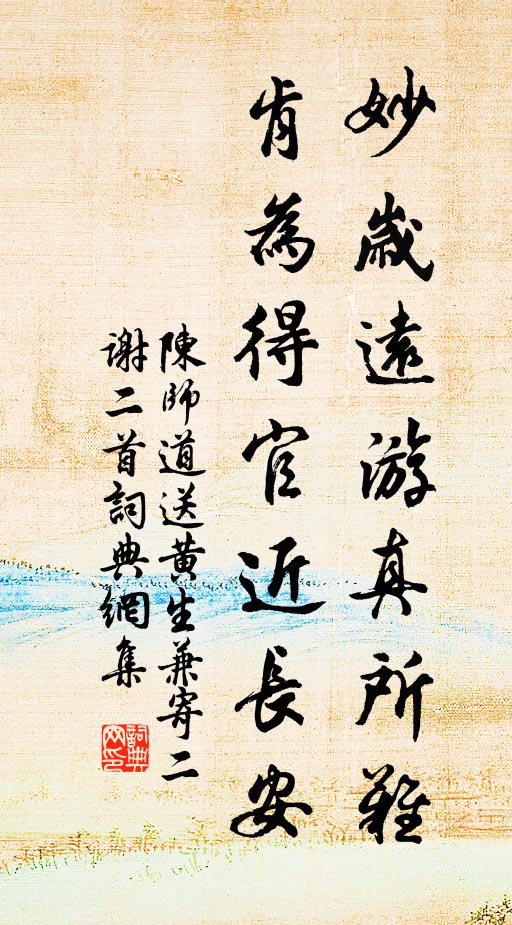 妙歲遠游真所難
肯為得官近長安
陳師道送黄生兼寄二
謝二首詞典網集
詞典
网印